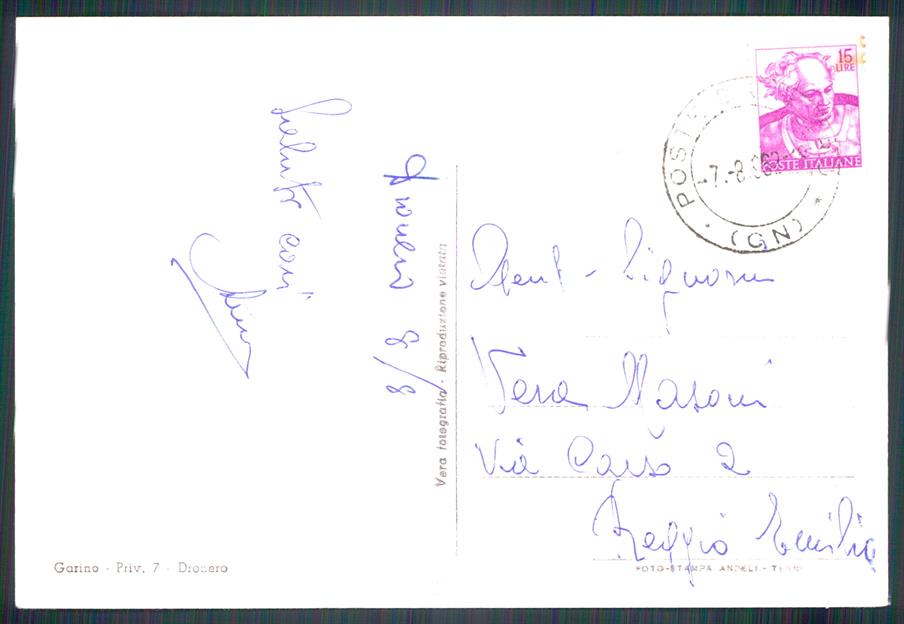 Dronero 8/8
Saluti cari
Vera fotografia - Riproduzione vietata
Garino - Priv. 7 - Dronero
15
LIRE
POSTE ITALIANE
POSTE
-7.-8.
* (CN) *
Gent. Signora
Vera Masoni
Via Carso 2
Reggio Emilia
FOTO-STAMPA ANGELI - TERNI